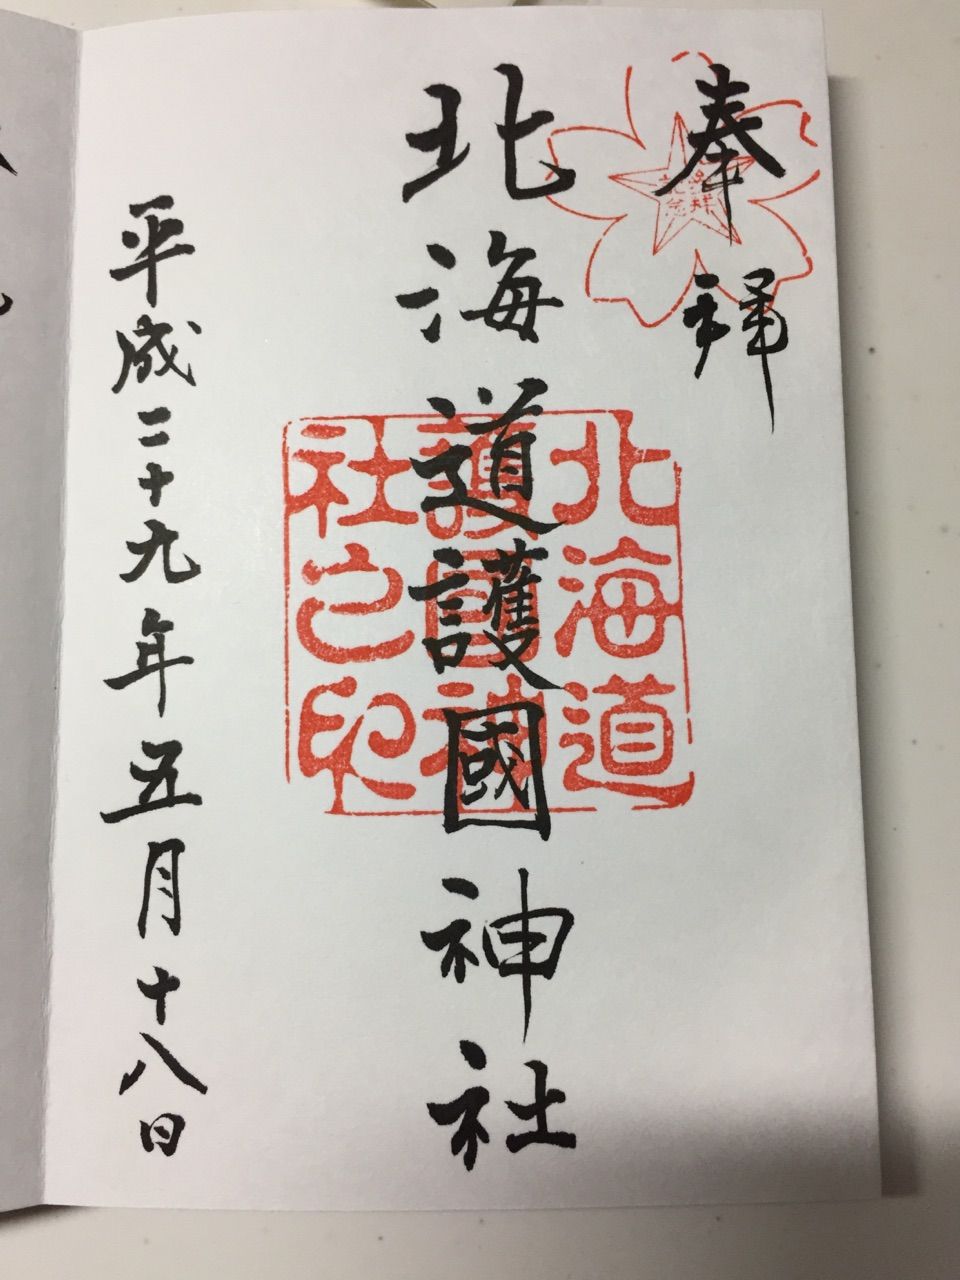 奉拝
北海道護國神社
北海道
護國神
社之印
平成二十九年五月十八日